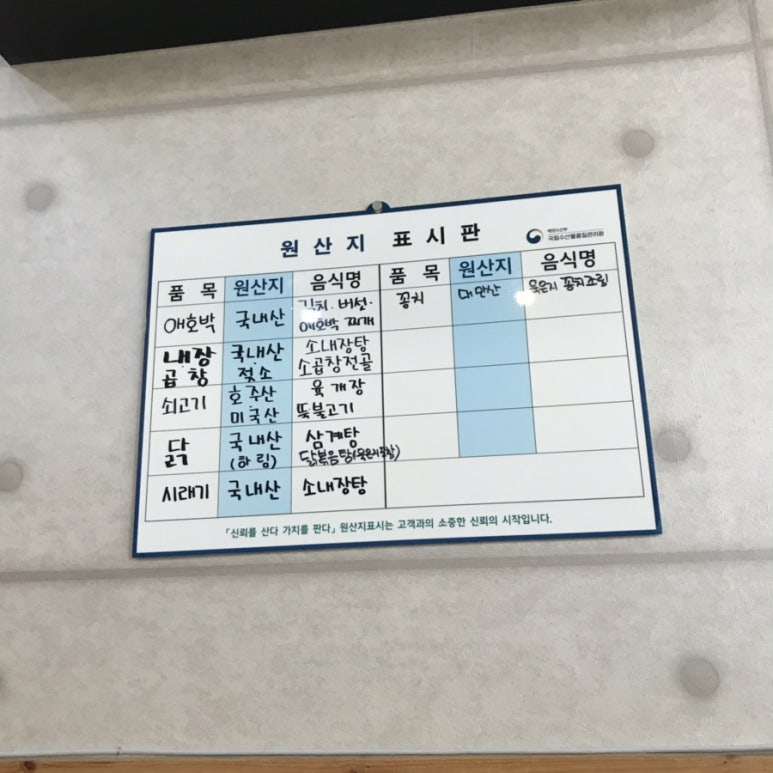 원산지 표시판
해양수산부
국립수산물품질관리원
품 목 원산지 음식명 품 목 원산지 음식명
애호박 국내산 김치·버섯· 꽁치 대만산 묵은지 꽁치조림
애호박 찌개
내장 국내산 소내장탕
곱창 젖소 소곱창전골
쇠고기 호주산 육개장
미국산 뚝불고기
닭 국내산 삼계탕
(하림) 닭볶음탕(묵은지포함)
시래기 국내산 소내장탕
「신뢰를 산다 가치를 판다」 원산지표시는 고객과의 소중한 신뢰의 시작입니다.